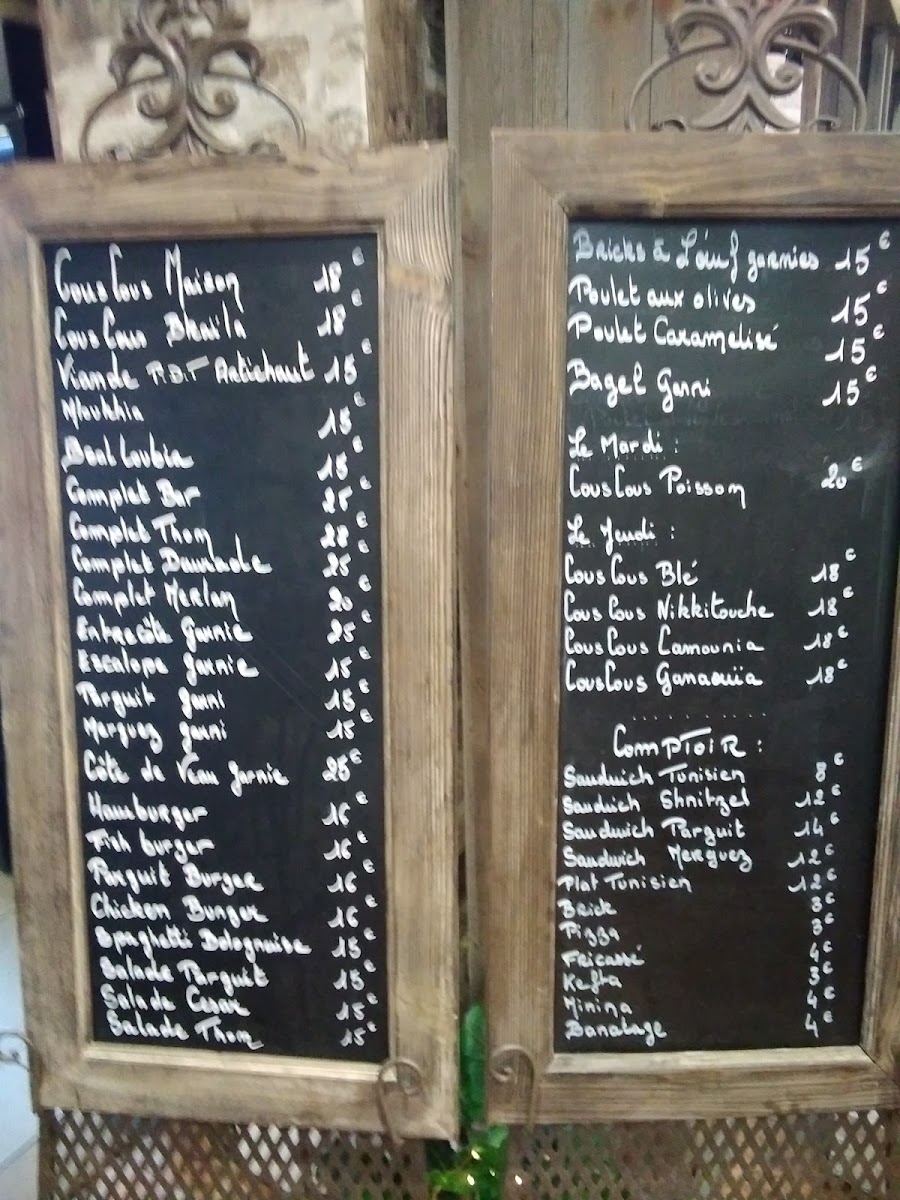 CousCous Maison 18€
CousCous Braïla 18€
Viande P.D.T Artichaut 15€
Mloukhia 15€
Bkal Loubia 15€
Complet Bar 25€
Complet Thon 28€
Complet Daurade 25€
Complet Merlan 20€
Entrecôte Garnie 25€
Escalope garnie 15€
Parguit garni 15€
Merguez garni 15€
Côte de Veau garnie 25€
Hamburger 16€
Fish burger 16€
Parguit Burger 16€
Chicken Burger 16€
Spaghetti Bolognaise 15€
Salade Parguit 15€
Salade Cesar 15€
Salade Thon 15€
Bricks à L'œuf garnies 15€
Poulet aux olives 15€
Poulet Caramelisé 15€
Bagel Garni 15€
Le Mardi :
CousCous Poisson 20€
Le Jeudi :
CousCous Blé 18€
CousCous Nikkitouche 18€
CousCous Camounia 18€
CousCous Ganaouïa 18€
Comptoir :
Sandwich Tunisien 8€
Sandwich Shnitzel 12€
Sandwich Parguit 14€
Sandwich Merguez 12€
Plat Tunisien 12€
Brick 3€
Pizza 3€
Fricassé 4€
Kefta 3€
Minina 4€
Banatage 4€